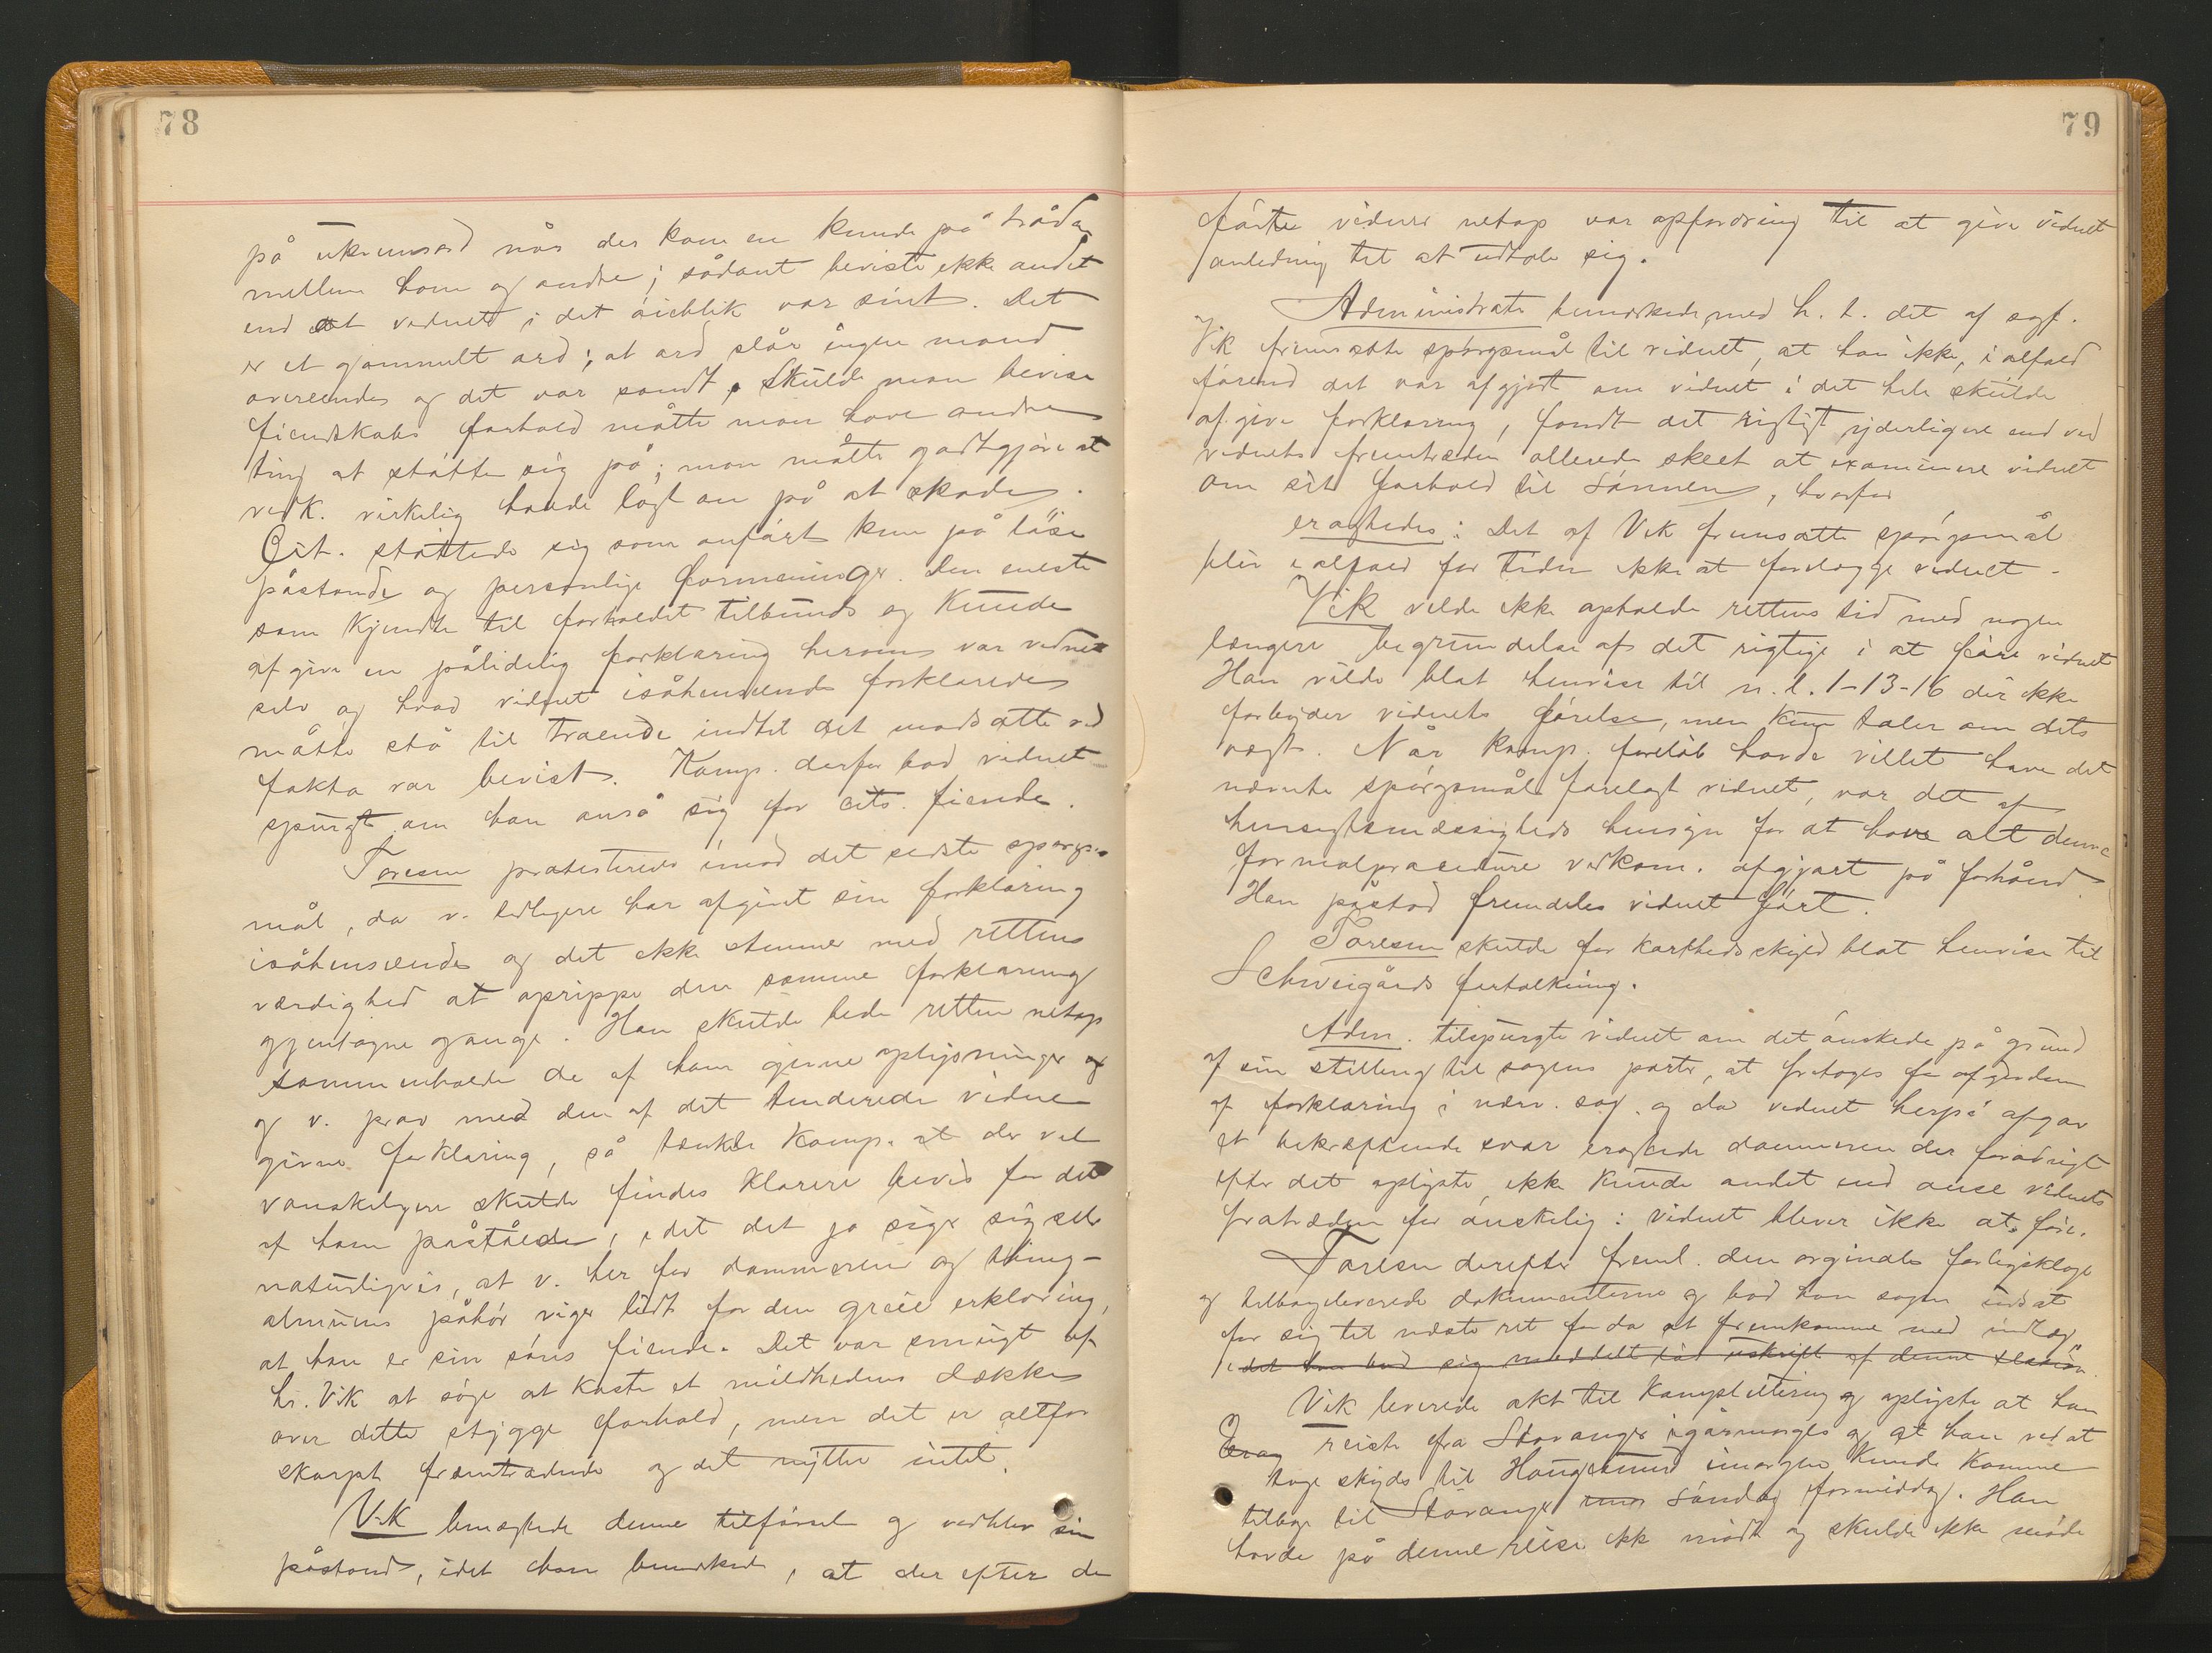 78
på ukvemsord når der kom en kurre på tråden
mellem ham og andre; sådant beviste ikke andet
end at vidnet i det øieblik var sint. Det
er et gammelt ord; at ord slår ingen mand
overende og det var sandt. Skulde man bevise
fiendskabs forhold måtte man have andre
ting at støtte sig på; man måtte godtgjøre at
vedk. virkelig havde lagt an på at skade.
Cit. støttede sig som anført kun på løse
påstande og personlige formeninger. Den eneste
som kjendte til forholdet tilbunds og kunde
afgive en pålidelig forklaring herom var vidnet
selv og hvad vidnet isåhenseende forklarede
måtte stå til troende indtil det modsatte ved
fakta var bevist. Komp. derfor bad vidnet
spurgt om han anså sig for cits. fiende.
Toresen protesterede imod det sidste spørgs-
mål, da v. tidligere har afgivt sin forklaring
isåhenseende og det ikke stemmer med rettens
værdighed at oprippe den samme forklaring
gjentagne gange. Han skulde bede retten netop
sammenholde de af ham givne oplysninger og
og v. prov med den af det tenderede vidne
givne forklaring, så tænkte komp. at der vel
vanskeligere skulde findes klarere bevis for det
af ham påståede, idet det jo siger sig selv
naturligvis, at v. her for dommeren og ting-
almuens påhør viger lidt for den greie erklæring,
at han er sin søns fiende. Det var smugt af
hr. Vik at søge at kaste et mildhedens dække
over dette stygge forhold, men det er altfor
skarpt fremtrædende og det nytter intet.
Vik benægtede denne tilførsel og vedblev sin
påstand, idet han bemærkede, at der efter de
79
førte vidner netop var opfordring til at give vidnet
anledning til at udtale sig.
Administrator bemærkede med h. t. det af sagf.
Vik fremsatte spørgsmål til vidnet, at han ikke, i alfald
førend det var afgjort om vidnet i det hele skulde
afgive forklaring, fandt det rigtigt yderligere end ved
vidnets fremtræden allerede skeet at examinere vidnet
om sit forhold til sønnen, hvorfor
eragtedes: Det af Vik fremsatte spørgsmål
blir ialfald for tiden ikke at forelægge vidnet.
Vik vilde ikke opholde rettens tid med nogen
længere begrundelse af det rigtige i at føre vidnet
Han vilde blot henvise til n. l. 1-13-16 der ikke
forbyder vidnets førelse, men kun taler om dets
vægt. Når komp. foreløb havde villet have det
nævnte spørgsmål forelagt vidnet, var det af
hensigtsmæssigheds hensyn for at have alt denne
formalprocedure vedkom. afgjort på forhånd.
Han påstod fremdeles vidnet ført.
Toresen skulde for korthedsskyld blot henvise til
Schweigårds fortolkning.
Adm. tilspurgte vidnet om det ønskede på grund
af sin stilling til sagens parter, at fritages for afgivelsen
af forklaring i nærv. sag. og da vidnet herpå afgav
et bekræftende svar eragtede dommeren der forøvrigt
efter det oplyste, ikke kunde andet end anse vidnets
fratræden for ønskelig: Vidnet bliver ikke at føre.
Toresen derefter freml. den orginale forligsklage
og tilbageleverede dokumenterne og bad han sagen udsat
for sig til næste ret for da at fremkomme med indlæg
idet han bad sig meddelt udskrift af denne
Vik leverede akt til komplettering og oplyste at han
Erag reiste fra Stavanger igårmorges og at han ved at
tage skyds til Haugesund imorgen kunde komme
tilbage til Stavanger søndag formiddag. Han
havde på denne reise ikke mødt og skulde ikke møde